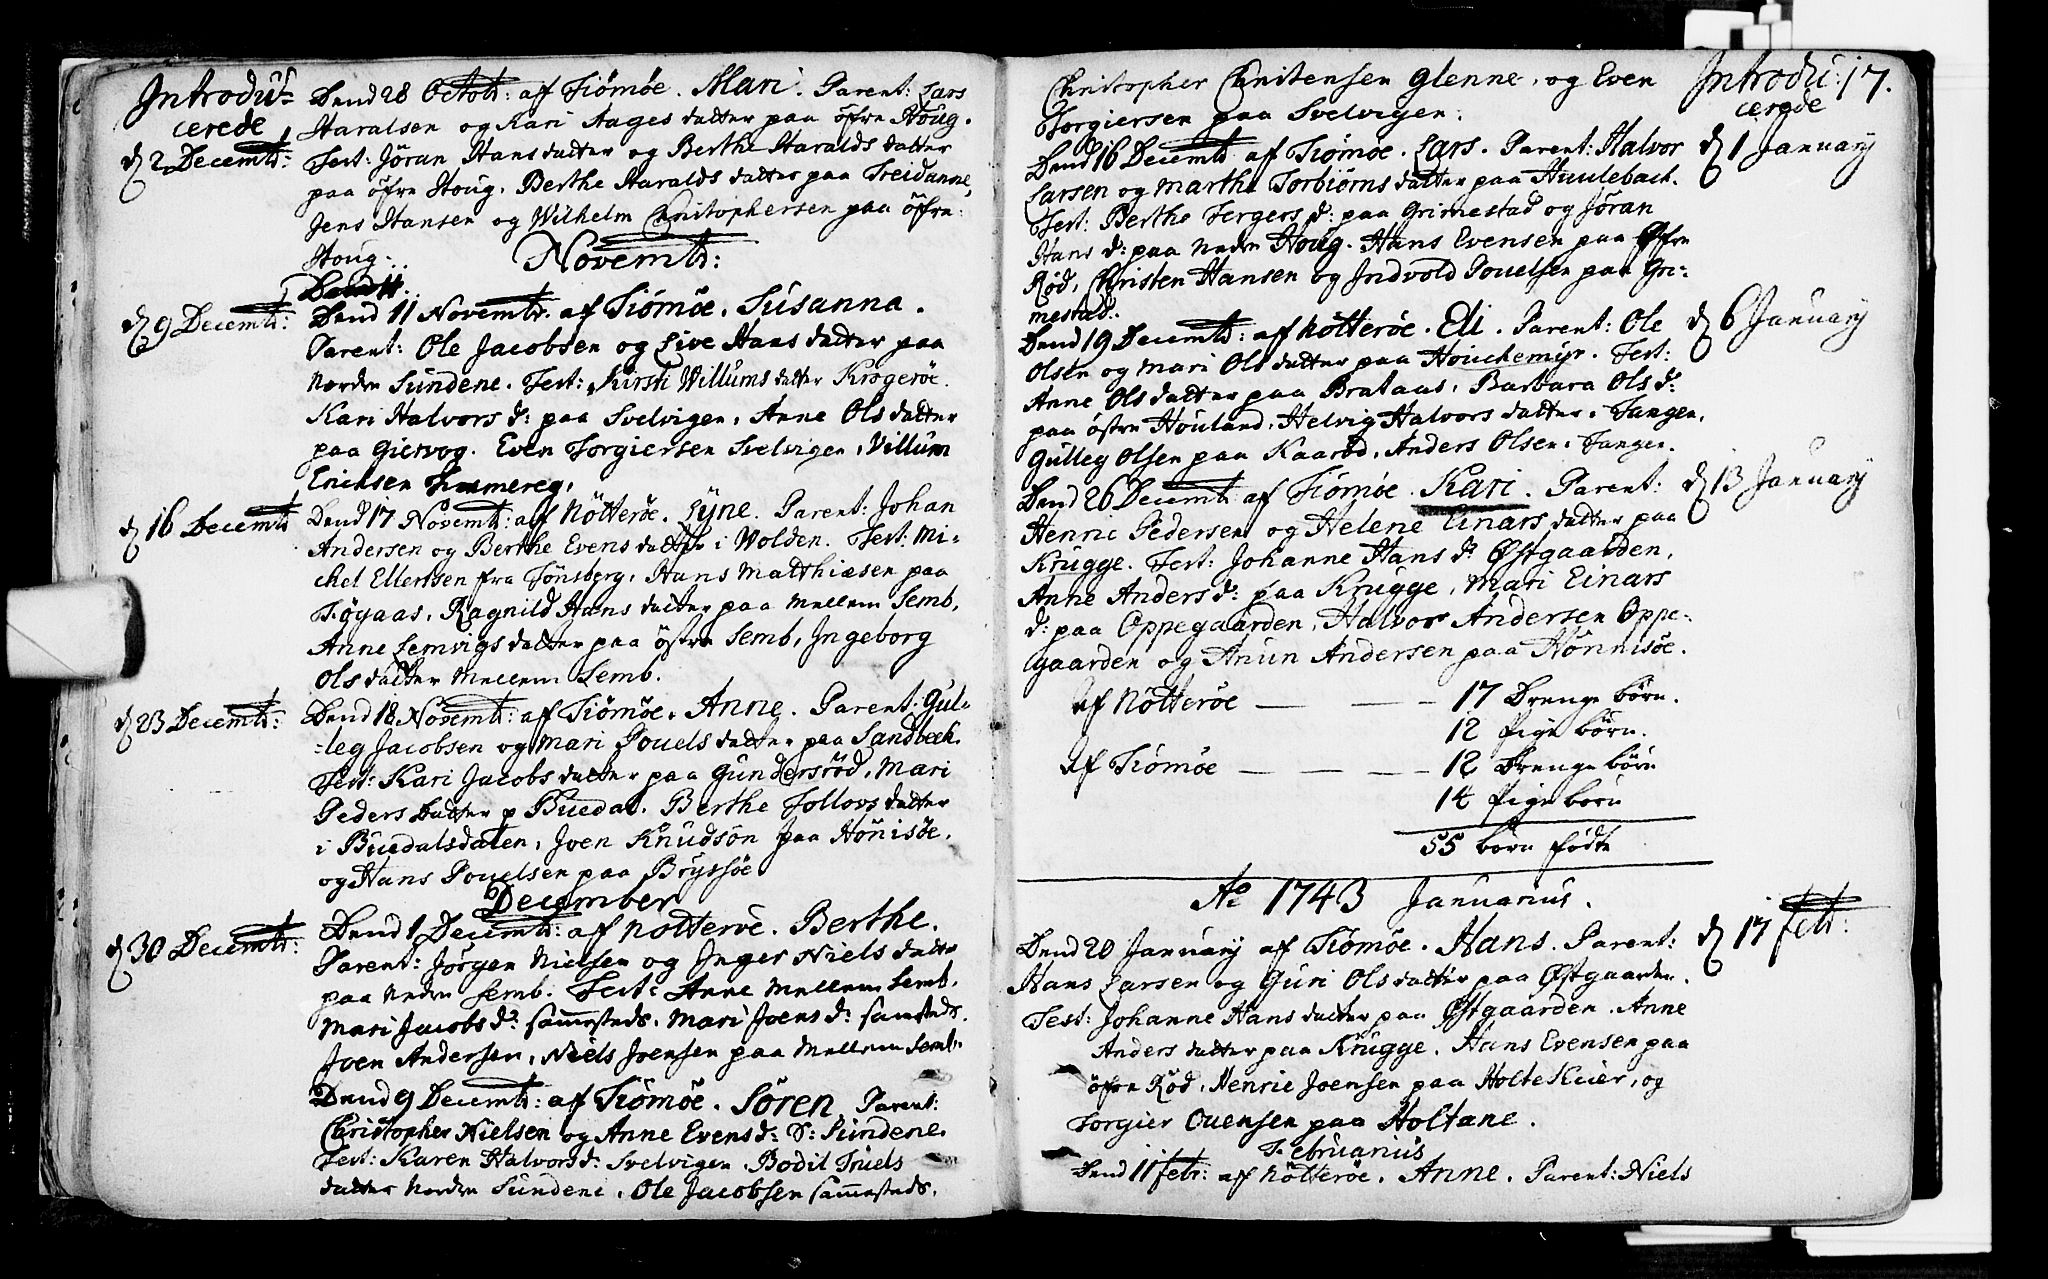 Introdu-
cerede
d 2 Decembr:
Dend 28 Octobr: af Tiömöe. Mari. Parent: Lars
Haralsen og Kari Aages datter paa öfre Houg.
Test: Jöran Hans datter og Berthe Haralds datter
paa öfre Houg. Berthe Haralds datter paa Treidanne,
Jens Hansen og Wilhelm Christophersen paa öfre
Houg.
Novembr:
d 9 Decembr:
Dend 11 Novembr. af Tiömöe. Susanna.
Parent: Ole Jacobsen og Live Hans datter paa
Nordre Sundene. Test: Kirsti Willums datter Kragerøe.
Kari Halvors d: paa Svelvigen, Anne Ols datter
paa Giervog. Even Torgiersen Svelvigen, Villum
Erichsen
d 16 Decembr
Dend 17 Novembr: af Nötteröe. Lyne. Parent: Johan
Andersen og Berthe Evens datter i Wolden. Test: Mi-
chel Ellertsen fra Tönsberg, Hans Matthiæsen paa
Töyaas, Ragnild Hans datter paa Mellem Semb,
Anne Lemvigs datter paa östre Semb, Ingeborg
Ols datter Mellem Semb.
d 23 Decembr:
Dend 18 Novembr: af Tiömöe. Anne. Parent: Gul-
-leg Jacobsen og Mari Pouels datter paa Sandbech.
Test: Kari Jacobs datter paa Gundersröd, Mari
Peders Datter p Buedal. Berthe Follovs datter
i Buedalsdalen, Joen Knudsön paa Hönisöe.
og Hans Pouelsen paa Bryssöe
December
d 30 Decembr:
Dend 1 Decembr: af Nötteröe. Berthe.
Parent: Jörgen Nielsen og Inger Niels datter
paa Nedre Semb. Test: Anne Mellem Semb.
Mari Jacobs d: sammesteds. Mari Joens d: samsteds.
Joen Andersen, Niels Joensen paa Mellem Semb.
Dend 9 Decembr: af Tiömöe. Sören. Parent:
Christopher Nielsen og Anne Evens d: S: Sundene.
Test: Karen Halvors d: Svelvigen. Bodil Truels
datter Nordre Sundene. Ole Jacobsen sammesteds.
Christopher Christensen Glenne, og Even
Torgiersen paa Svelvigen.
Introdu: 17.
cerede
d 1 January
Dend 16 Decembr af Tiömöe. Lars. Parent: Halvor
Larsen og Marthe Torbiörns datter paa Huulebach.
Test: Berthe Jergers d: paa Grimestad og Jöran
Hans d: paa Nedre Houg. Hans Evensen paa Öfre
Röd, Christen Hansen og Indvold Pouelsen paa Gri-
mestad.
d 6 January
Dend 19 Decembr: af Nötteröe. Eli. Parent: Ole
Olsen og Mari Ols datter paa Houchemyr. Test:
Anne Ols datter paa Brataas, Barbara Ols d:
paa östre Houland, Helvig Halvors datter. Tangen,
Gulleg Olsen paa Kaaröd, Anders Olsen. Tangen.
d 13 January
Dend 26 Decembr af Tiömöe. Kari. Parent:
Henric Pedersen og Helene Einars datter paa
Krugge. Test: Johanne Hans d: Östgaarden,
Anne Anders d: paa Krugge, Mari Einars
d: paa Oppegaarden, Halvor Andersen Oppe-
gaarden og Anun Andersen paa Hönnisöe.
Af Nötteröe — — — 17 Drenge börn.
12 Pige börn.
Af Tiömöe — — — 12 Drenge börn
14 Pige börn
55 börn födte
Ao 1743 Januarius.
d 17 febr:
Dend 20 January af Tiömöe. Hans. Parent:
Hans Larsen og Guri Ols datter paa Östgaarden.
Test: Johanne Hans datter paa Östgaarden. Anne
Anders datter paa Krugge. Hans Evensen paa
öfre Röd, Henric Joensen paa Holte Kiær, og
Torgier Ouensen paa Holtane.
Februarius
Dend 11 febr: af Nötteröe. Anne. Parent: Niels